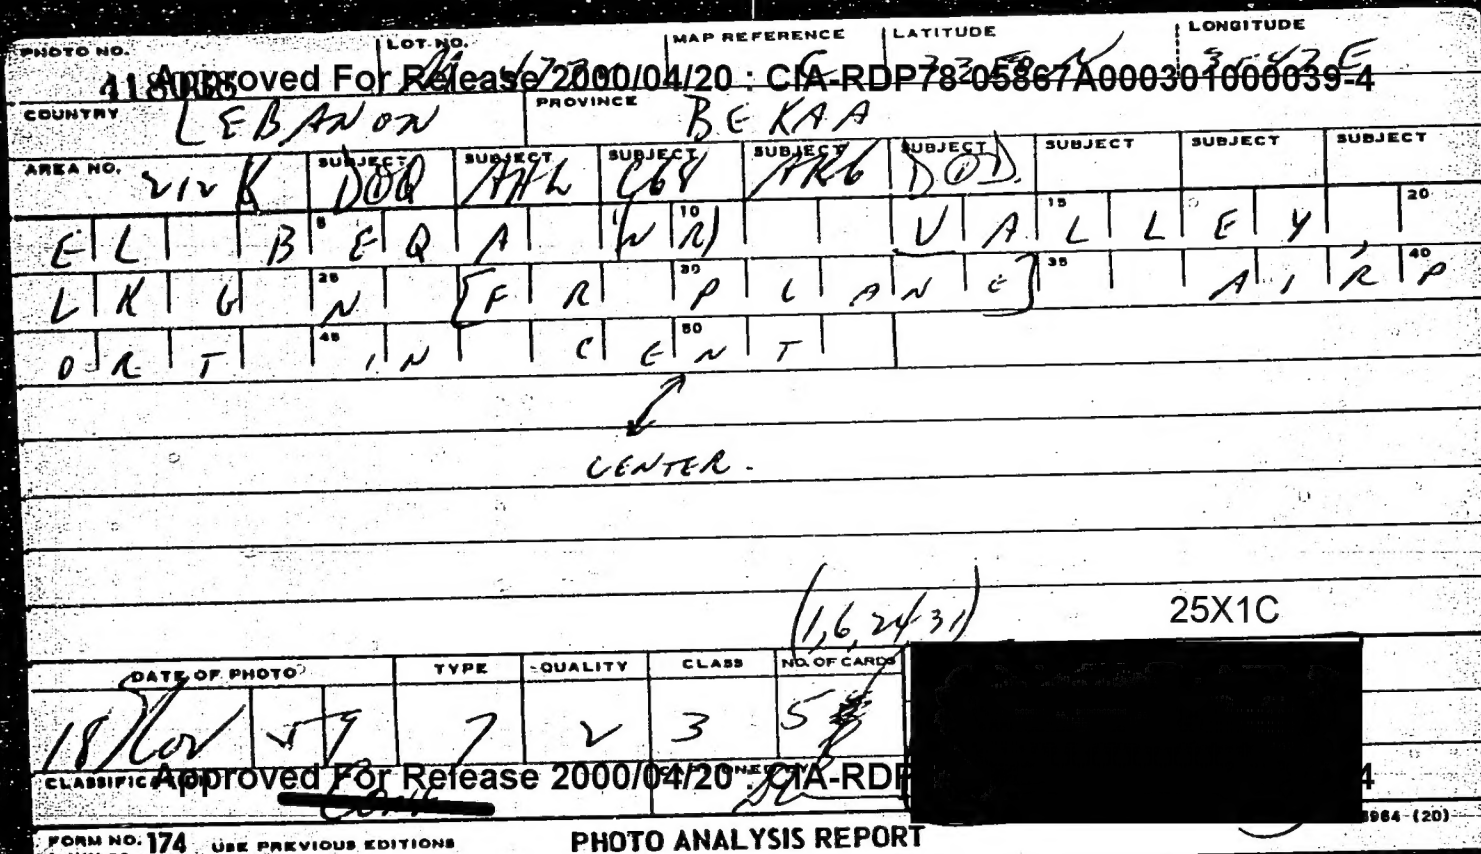 PHOTO NO. LOT NO. MAP REFERENCE LATITUDE LONGITUDE
Approved For Release 2000/04/20 : CIA-RDP78-05867A000301000039-4
COUNTRY LEBANON PROVINCE BEKAA
AREA NO. 212K SUBJECT DOQ SUBJECT AHL SUBJECT C68 SUBJECT AR6 SUBJECT DOD. SUBJECT SUBJECT SUBJECT
EL BEQA (NR) VALLEY
LKG N [FR PLANE] AIRP
ORT IN CENT
CENTER.
(1,6,24-31)
25X1C
DATE OF PHOTO TYPE QUALITY CLASS NO. OF CARDS
18 Nov 59 7 2 3 5
Approved For Release 2000/04/20 : CIA-RDP 4
CONF
FORM NO. 174 USE PREVIOUS EDITIONS PHOTO ANALYSIS REPORT (20)